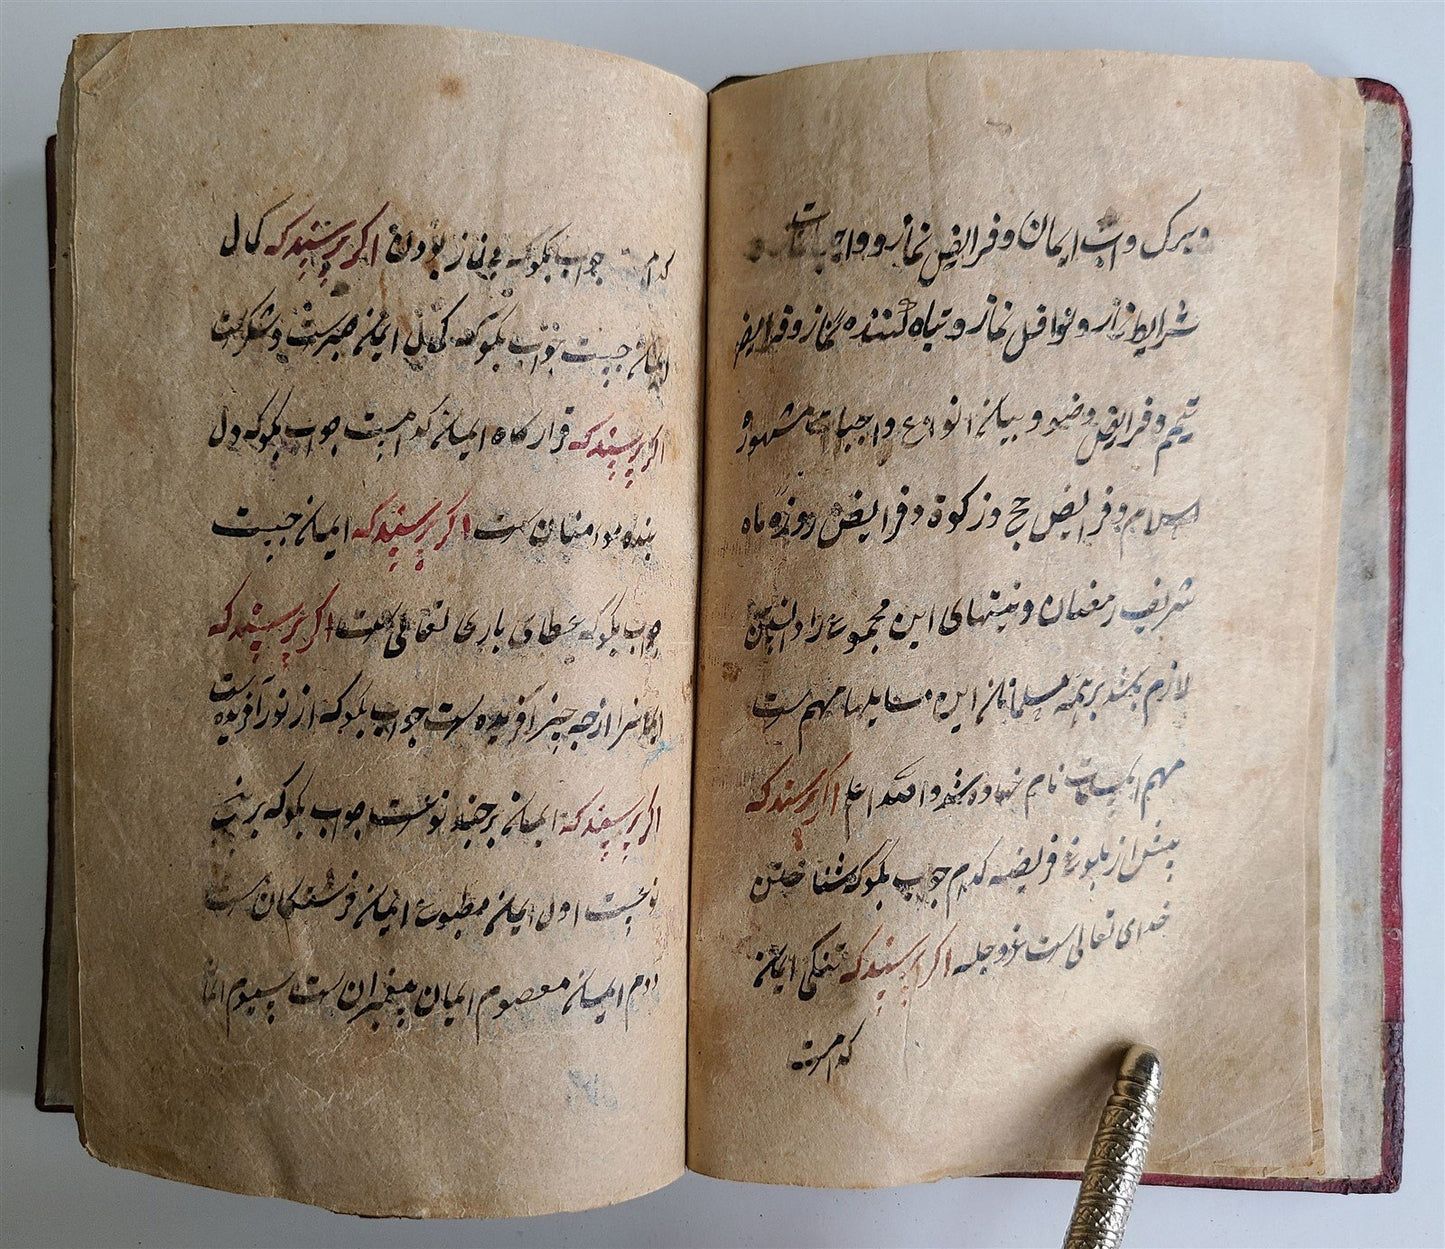 و ایمان و فرایض نماز و واجبات
شرایط نماز و نوافل نماز و تباه کننده نماز و فرایض
تیمم و فرایض وضو و بیان انواع واجبات مشهور
اسلام و فرایض حج و زکوة و فرایض روزه ماه
شریف رمضان و نیتهای این مجموع را
لازم بر همه مسلمانان این مسایلها مهم ست
مهم نام نهاده شد اگر پرسند که
پیش از بلوغ فریضه کدام جواب بگوکه شناختن
خدای تعالی ست عز و جله اگر پرسند که ایمان
کدامست
کدامست جواب بگوکه بودن اگر پرسند که کمال
ایمان چیست جواب بگوکه کمال ایمان
اگر پرسند که قرارگاه ایمان کدامست جواب بگوکه دل
بنده مومنان ست اگر پرسند که ایمان چیست
جواب بگوکه عطای باری تعالی ست اگر پرسند که
از چه چیز آفریده ست جواب بگوکه از نور آفریده ست
اگر پرسند که ایمان بر چند نوعست جواب بگوکه بر پنج
نوعست اول ایمان مطبوع ایمان فرشتگان ست
دوم ایمان معصوم ایمان پیغمبران ست سیوم ایمان